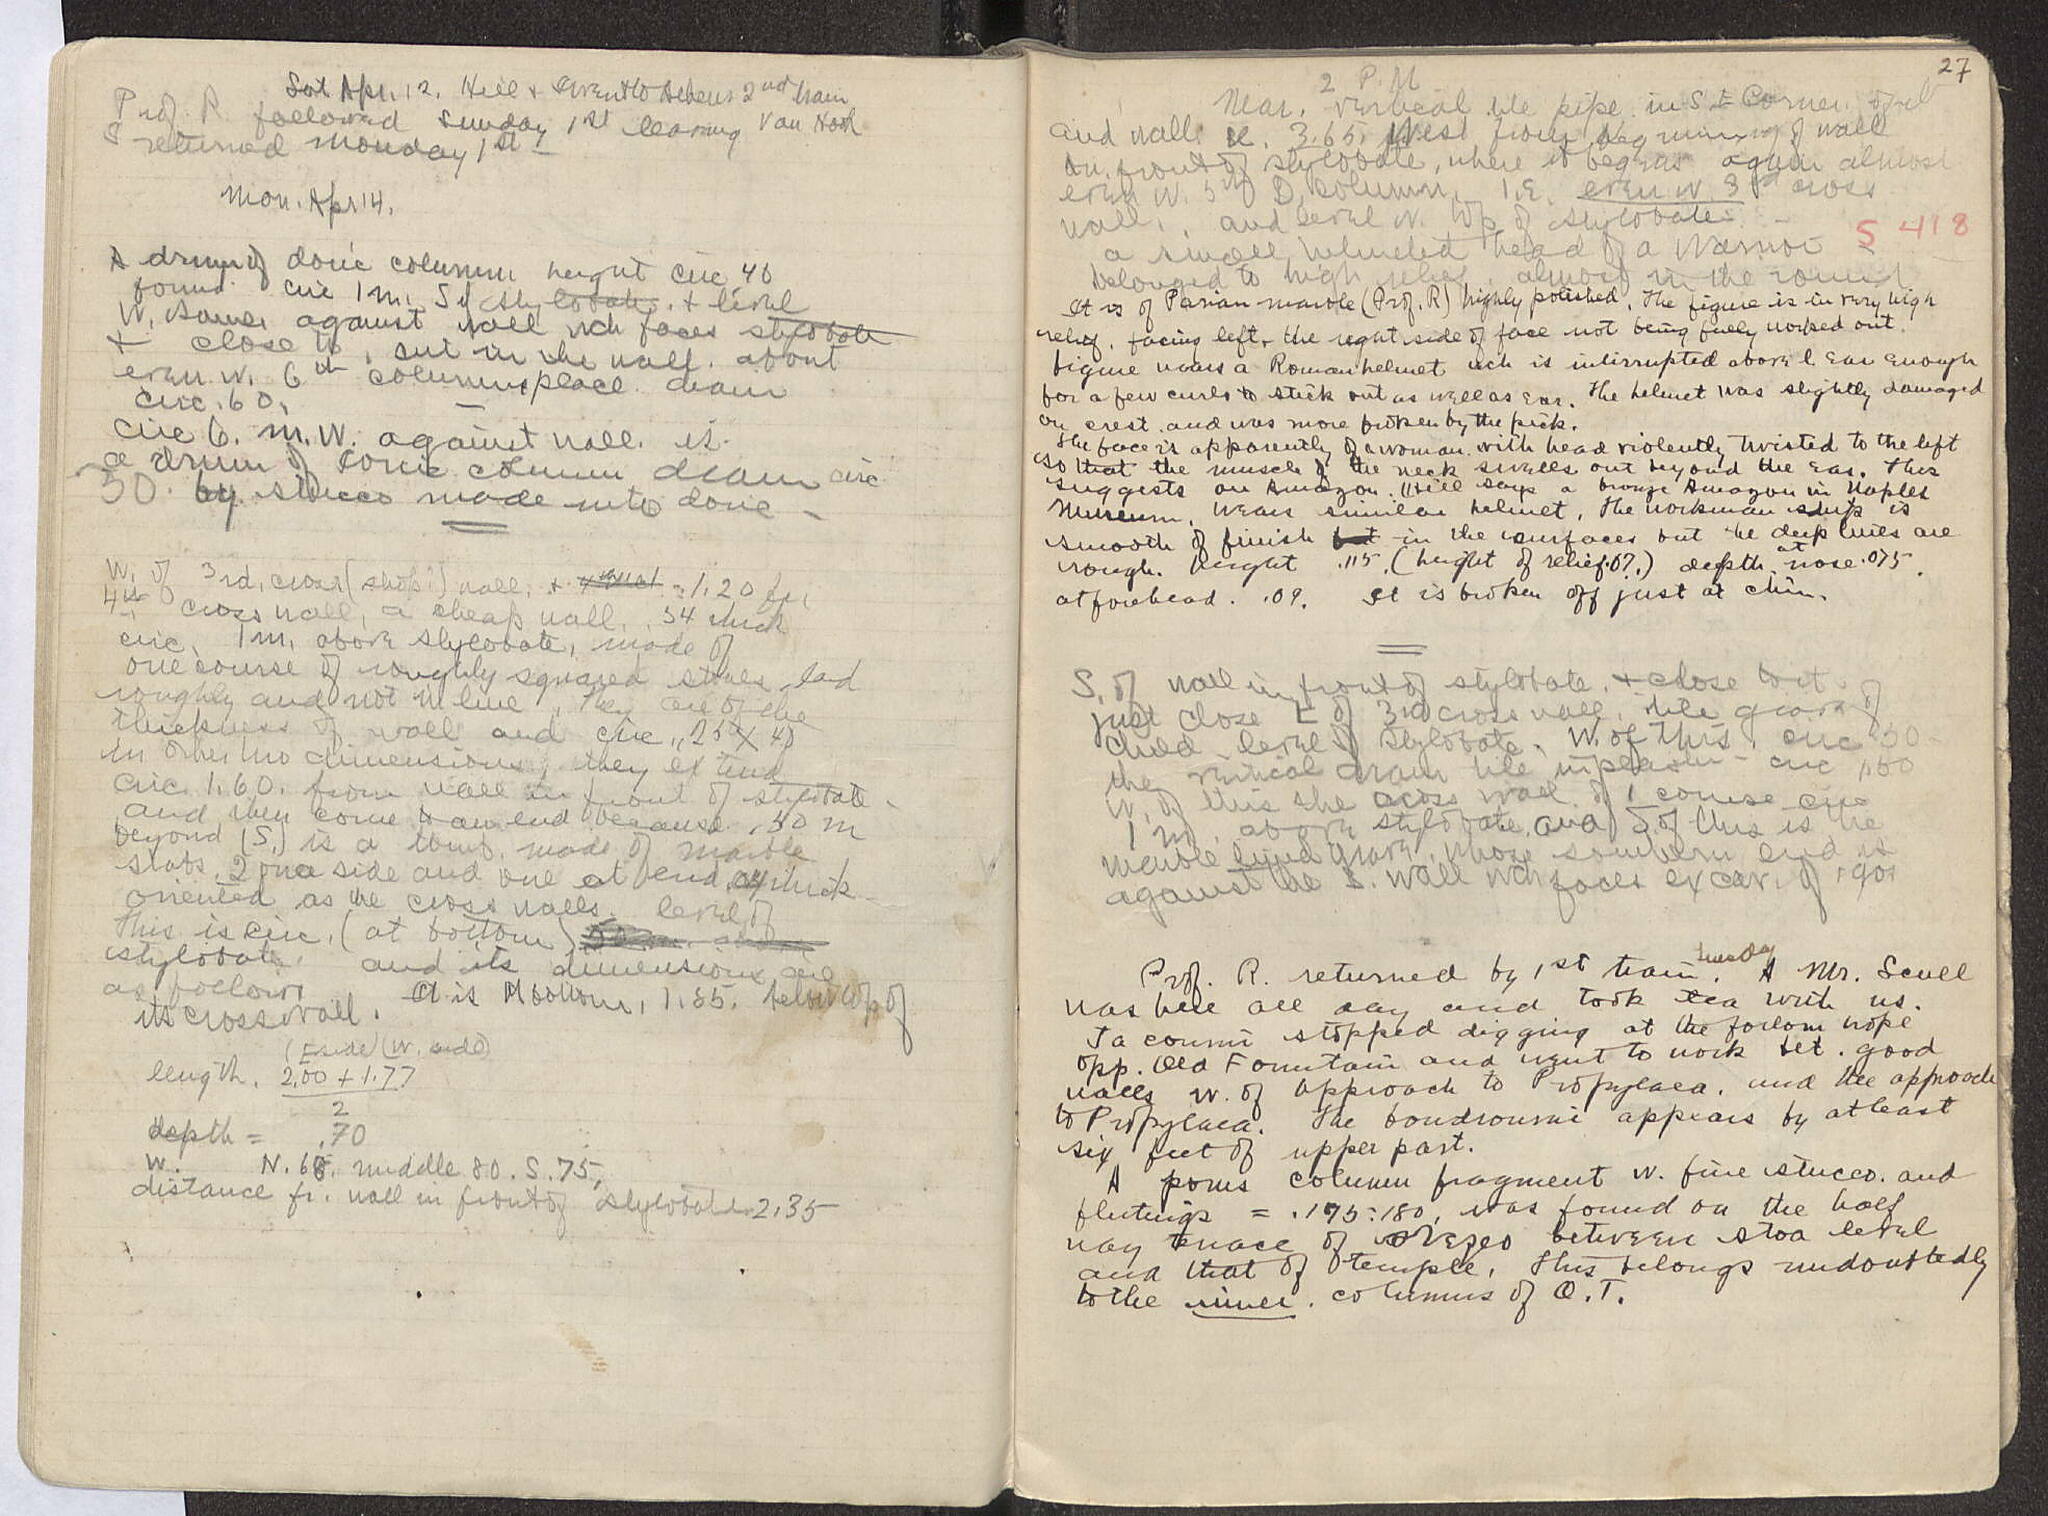 Sat Apr. 12. Hill & S went to Athens 2nd train
Prof. R. followed Sunday 1st leaving Van Hook
S returned Monday 1st –
Mon. Apr 14.
A drum of doric column height circ 46
found circ 1 m. S of stylobate. & level
W. same, against wall wch faces stylobate
& close to, set in the wall. about
even w. 6th column place diam
circ. 60.
circ 6. m. W. against wall is
a drum of Ionic column diam circ
50. by stucco made into doric –
W. of 3rd. cross (shop?) wall, & 1.20 fr.
4th cross wall, a cheap wall, .54 thick
circ. 1 m. above stylobate, made of
one course of roughly squared stones laid
roughly and not in line. They are of the
thickness of wall and circ .25 x 40
in other two dimensions, they extend
circ. 1.60. from wall in front of stylobate –
and they come to an end because .50 m
beyond (S.) is a tomb, made of marble
slabs, 2 on a side and one at end, .04 thick –
oriented as the cross walls. level of
this is circ. (at bottom)
stylobate. and its dimensions are
as follows It is at bottom, 1.55. below top of
its cross wall.
(E side) (W. side)
length. 2.00 + 1.77
2
depth = .70
W. N. 68. middle 80. S. 75,
distance fr. wall in front of stylobate 2.35
27
2 P.M
Near vertical tile pipe in S E Corner of
and wall 3.65. West from beginning of wall
in front of stylobate, where it begins again almost
even w. 5th D. column, I.E. even w. 3rd cross
wall, and level w. top of stylobate –
a small helmeted head of a Warrior S 418
belonged to high relief, almost in the round
It is of Parian marble (Prof. R) highly polished. The figure is in very high
relief, facing left, the right side of face not being fully worked out.
figure wears a Roman helmet wch is interrupted above l ear enough
for a few curls to stick out as well as ear. The helmet was slightly damaged
on crest and was more broken by the pick.
The face is apparently of a woman with head violently twisted to the left
so that the muscle of the neck swells out beyond the ear. This
suggests an Amazon. Hill says a bronze Amazon in Naples
Museum, wears similar helmet. The workmanship is
smooth of finish in the surfaces but the deep lines are
rough. height .115. (height of relief .07.) depth at nose .075.
at forehead. .09. It is broken off just at chin.
S. of wall in front of stylobate, & close to it
just close E of 3rd cross wall, tile grave of
child level of stylobate. W. of this, circ 50 –
the vertical drain tile in plaster – circ 1.60
W. of this the cross wall of 1 course circ
1 m. above stylobate, and S. of this is the
marble lined grave, whose southern end is
against the S. wall wch faces excav. of 1901
Prof. R. returned by 1st train. Tuesday A Mr. Scull
was here all day and took tea with us.
Ta coumi stopped digging at the forlorn hope
opp. Old Fountain and went to work bet. good
walls W. of approach to Propylaea. and the approach
to Propylaea. The boudroumi appears by at least
six feet of upper part.
A poros column fragment w. fine stucco. and
flutings = .175:180, was found on the half
way terrace of between stoa level
and that of temple. This belongs undoubtedly
to the inner. columns of O.T.